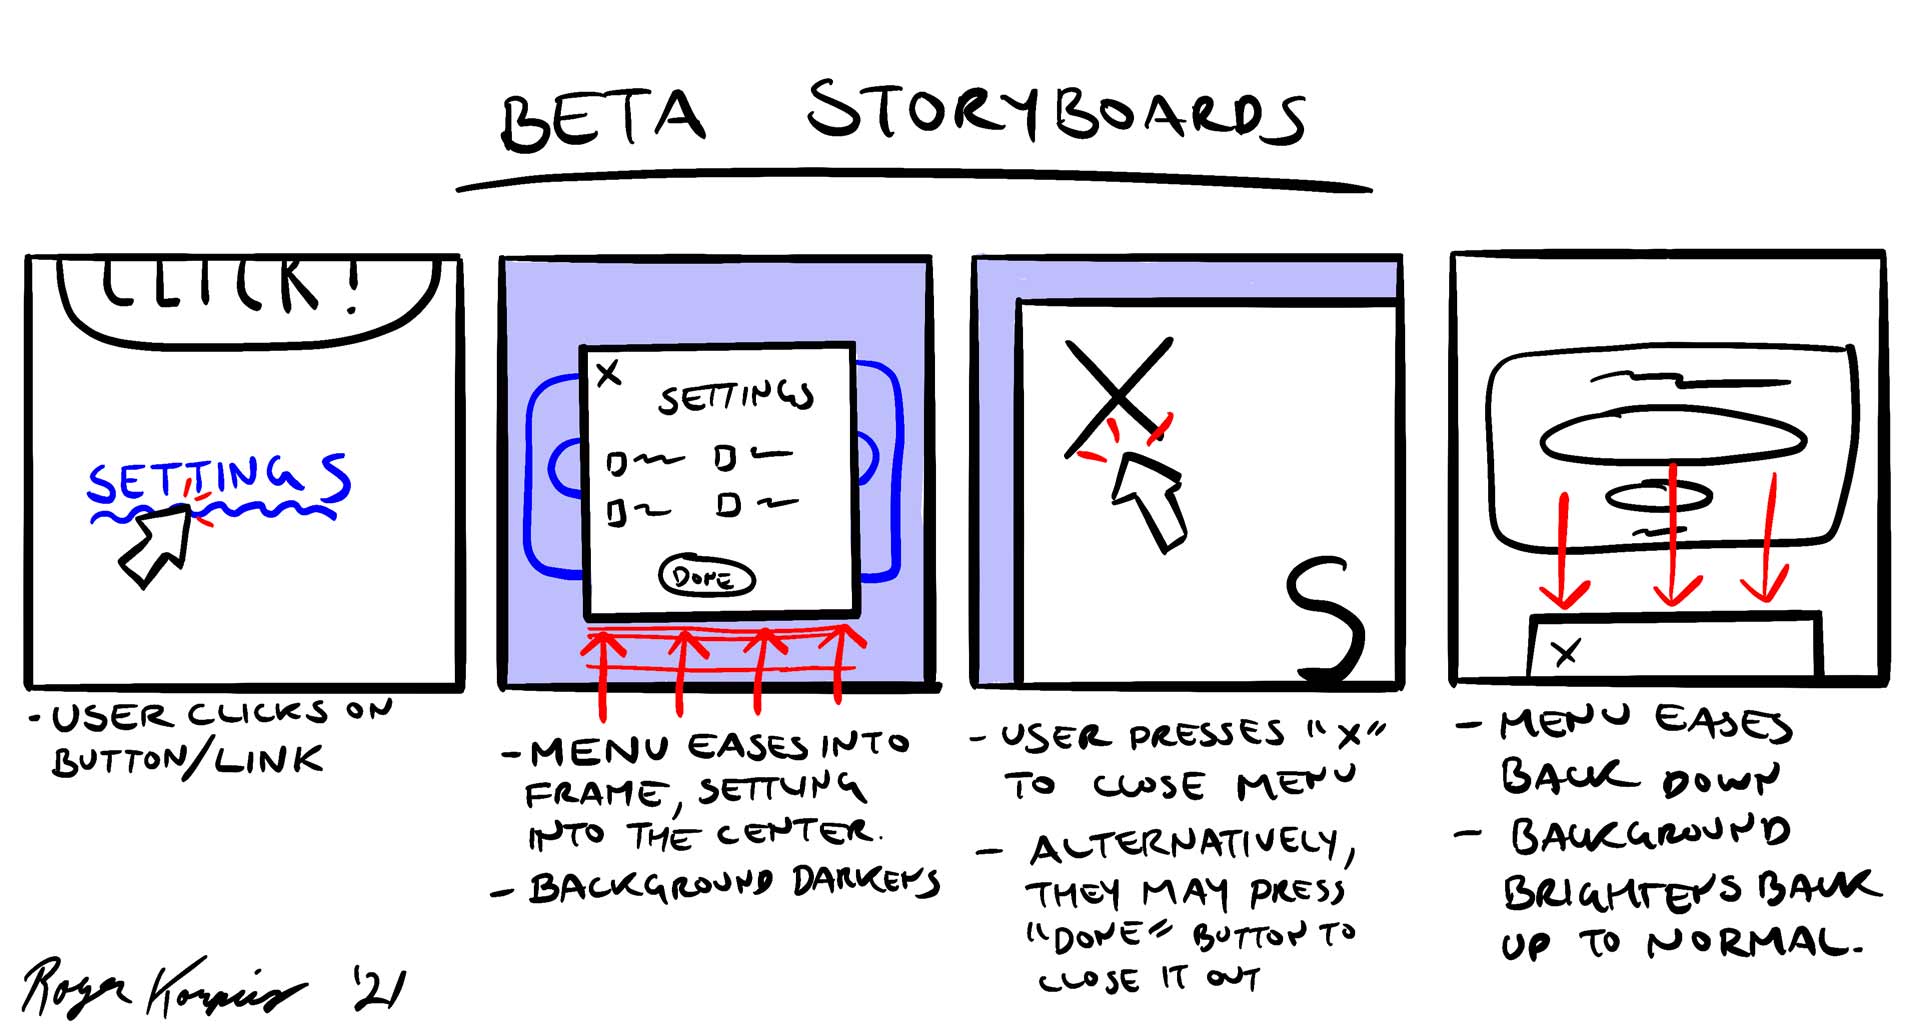 BETA STORYBOARDS
CLICK!
SETTINGS
- USER CLICKS ON
BUTTON/LINK
X
SETTINGS
DONE
- MENU EASES INTO
FRAME, SETTLING
INTO THE CENTER.
- BACKGROUND DARKENS
X
S
- USER PRESSES "X"
TO CLOSE MENU
- ALTERNATIVELY,
THEY MAY PRESS
"DONE" BUTTON TO
CLOSE IT OUT
X
- MENU EASES
BACK DOWN
- BACKGROUND
BRIGHTENS BACK
UP TO NORMAL.
Roger '21